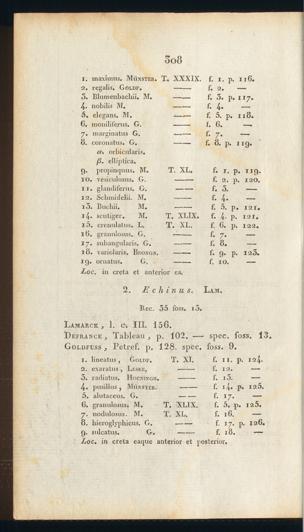 308
1. maximus. MÜNSTER. T. XXXIX. f. 1. p. 116.
2. regalis. GOLDF. —— f. 2. —
3. Blumenbachii. M. —— f. 3. p. 117.
4. nobilis M. —— f. 4. —
5. elegans. M. —— f. 5. p. 118.
6. moniliferus. G. —— f. 6. —
7. marginatus G. —— f. 7. —
8. coronatus. G. —— f. 8. p. 119.
α. orbicularis.
β. elliptica.
9. propinquus. M. T. XL. f. 1. p. 119.
10. vesiculosus. G. —— f. 2. p. 120.
11. glandiferus. G. —— f. 3. —
12. Schmidelii. M. —— f. 4. —
13. Buchii. M. —— f. 5. p. 121.
14. scutiger. M. T. XLIX. f. 4. p. 121.
15. crenulatus. L. T. XL. f. 6. p. 122.
16. granulosus. G. —— f. 7. —
17. subangularis. G. —— f. 8. —
18. variolaris. BRONGN. —— f. 9. p. 123.
19. ornatus. G. —— f. 10. —
Loc. in creta et anterior ea.
2. Echinus. LAM.
Rec. 35 foss. 13.
LAMARCK, l. c. III. 156.
DEFRANCE, Tableau, p. 102. — spec. foss. 13.
GOLDFUSS, Petref. p. 128. spec. foss. 9.
1. lineatus, GOLDF. T. XI. f. 11. p. 124.
2. exaratus, LESKE, —— f. 12. —
3. radiatus. HOENINGH. —— f. 13. —
4. pusillus, MÜNSTER. —— f. 14. p. 125.
5. alutaceus. G. —— f. 17. —
6. granulosus, M. T. XLIX. f. 5. p. 125.
7. nodulosus. M. T. XL. f. 16. —
8. hieroglyphicus. G. —— f. 17. p. 126.
9. sulcatus. G. —— f. 18. —
Loc. in creta eaque anterior et posterior.